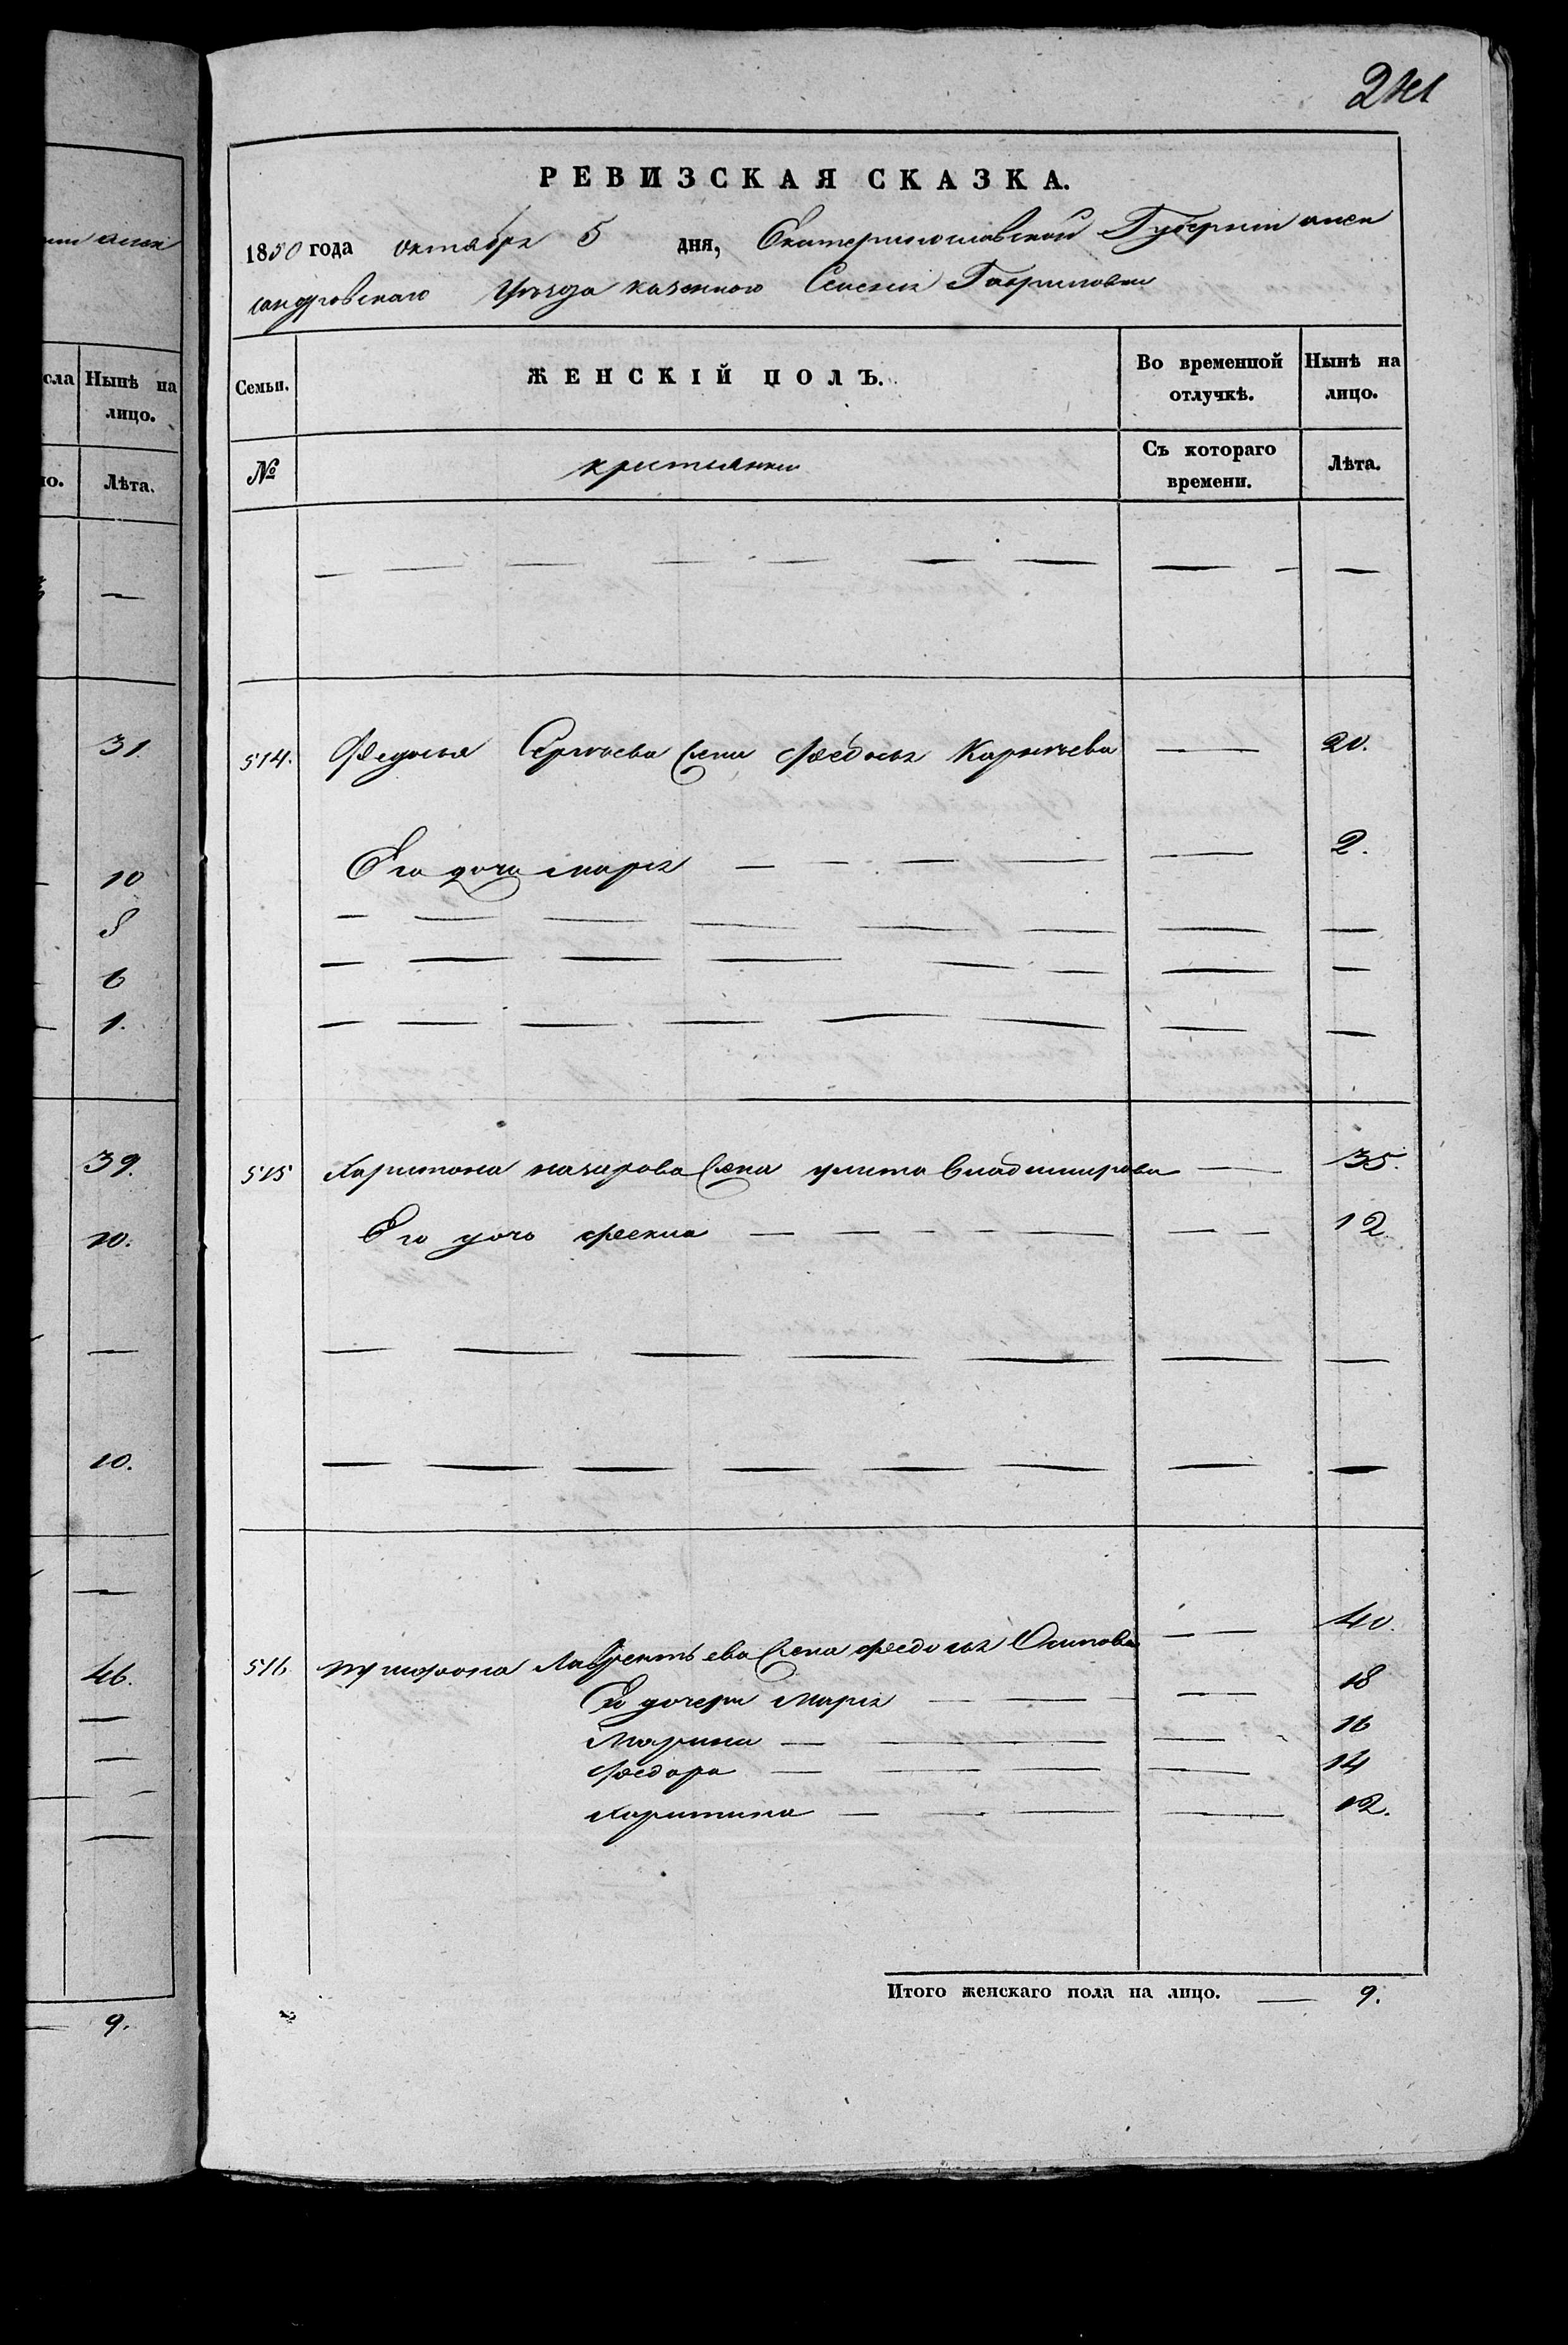 241
РЕВИЗСКАЯ СКАЗКА.
1850 года октября 5 дня, Екатеринославской Губернии алек
сандровскаго Уѣзда казенного Селения Гавриловки
Семьи. ЖЕНСКІЙ ПОЛЪ. Во временной отлучкѣ. Нынѣ на лицо.
№ кристьянки Съ котораго времени. Лѣта.
514. Федосья Сергѣева жена Федосья 20.
Его дочь мария 2.
515 Харитона назарова жена улита владимирова 35.
Его дочь фекла 12
516. Лаврентьева жена федосья Осипова 40.
Его дочери Мария 18
Марина 16
федора 14
Харитина 12.
Итого женскаго пола на лицо. 9.
сла Нынѣ на
лицо.
ло. Лѣта.
31.
10
8
6
1.
39.
10.
10.
46.
9.